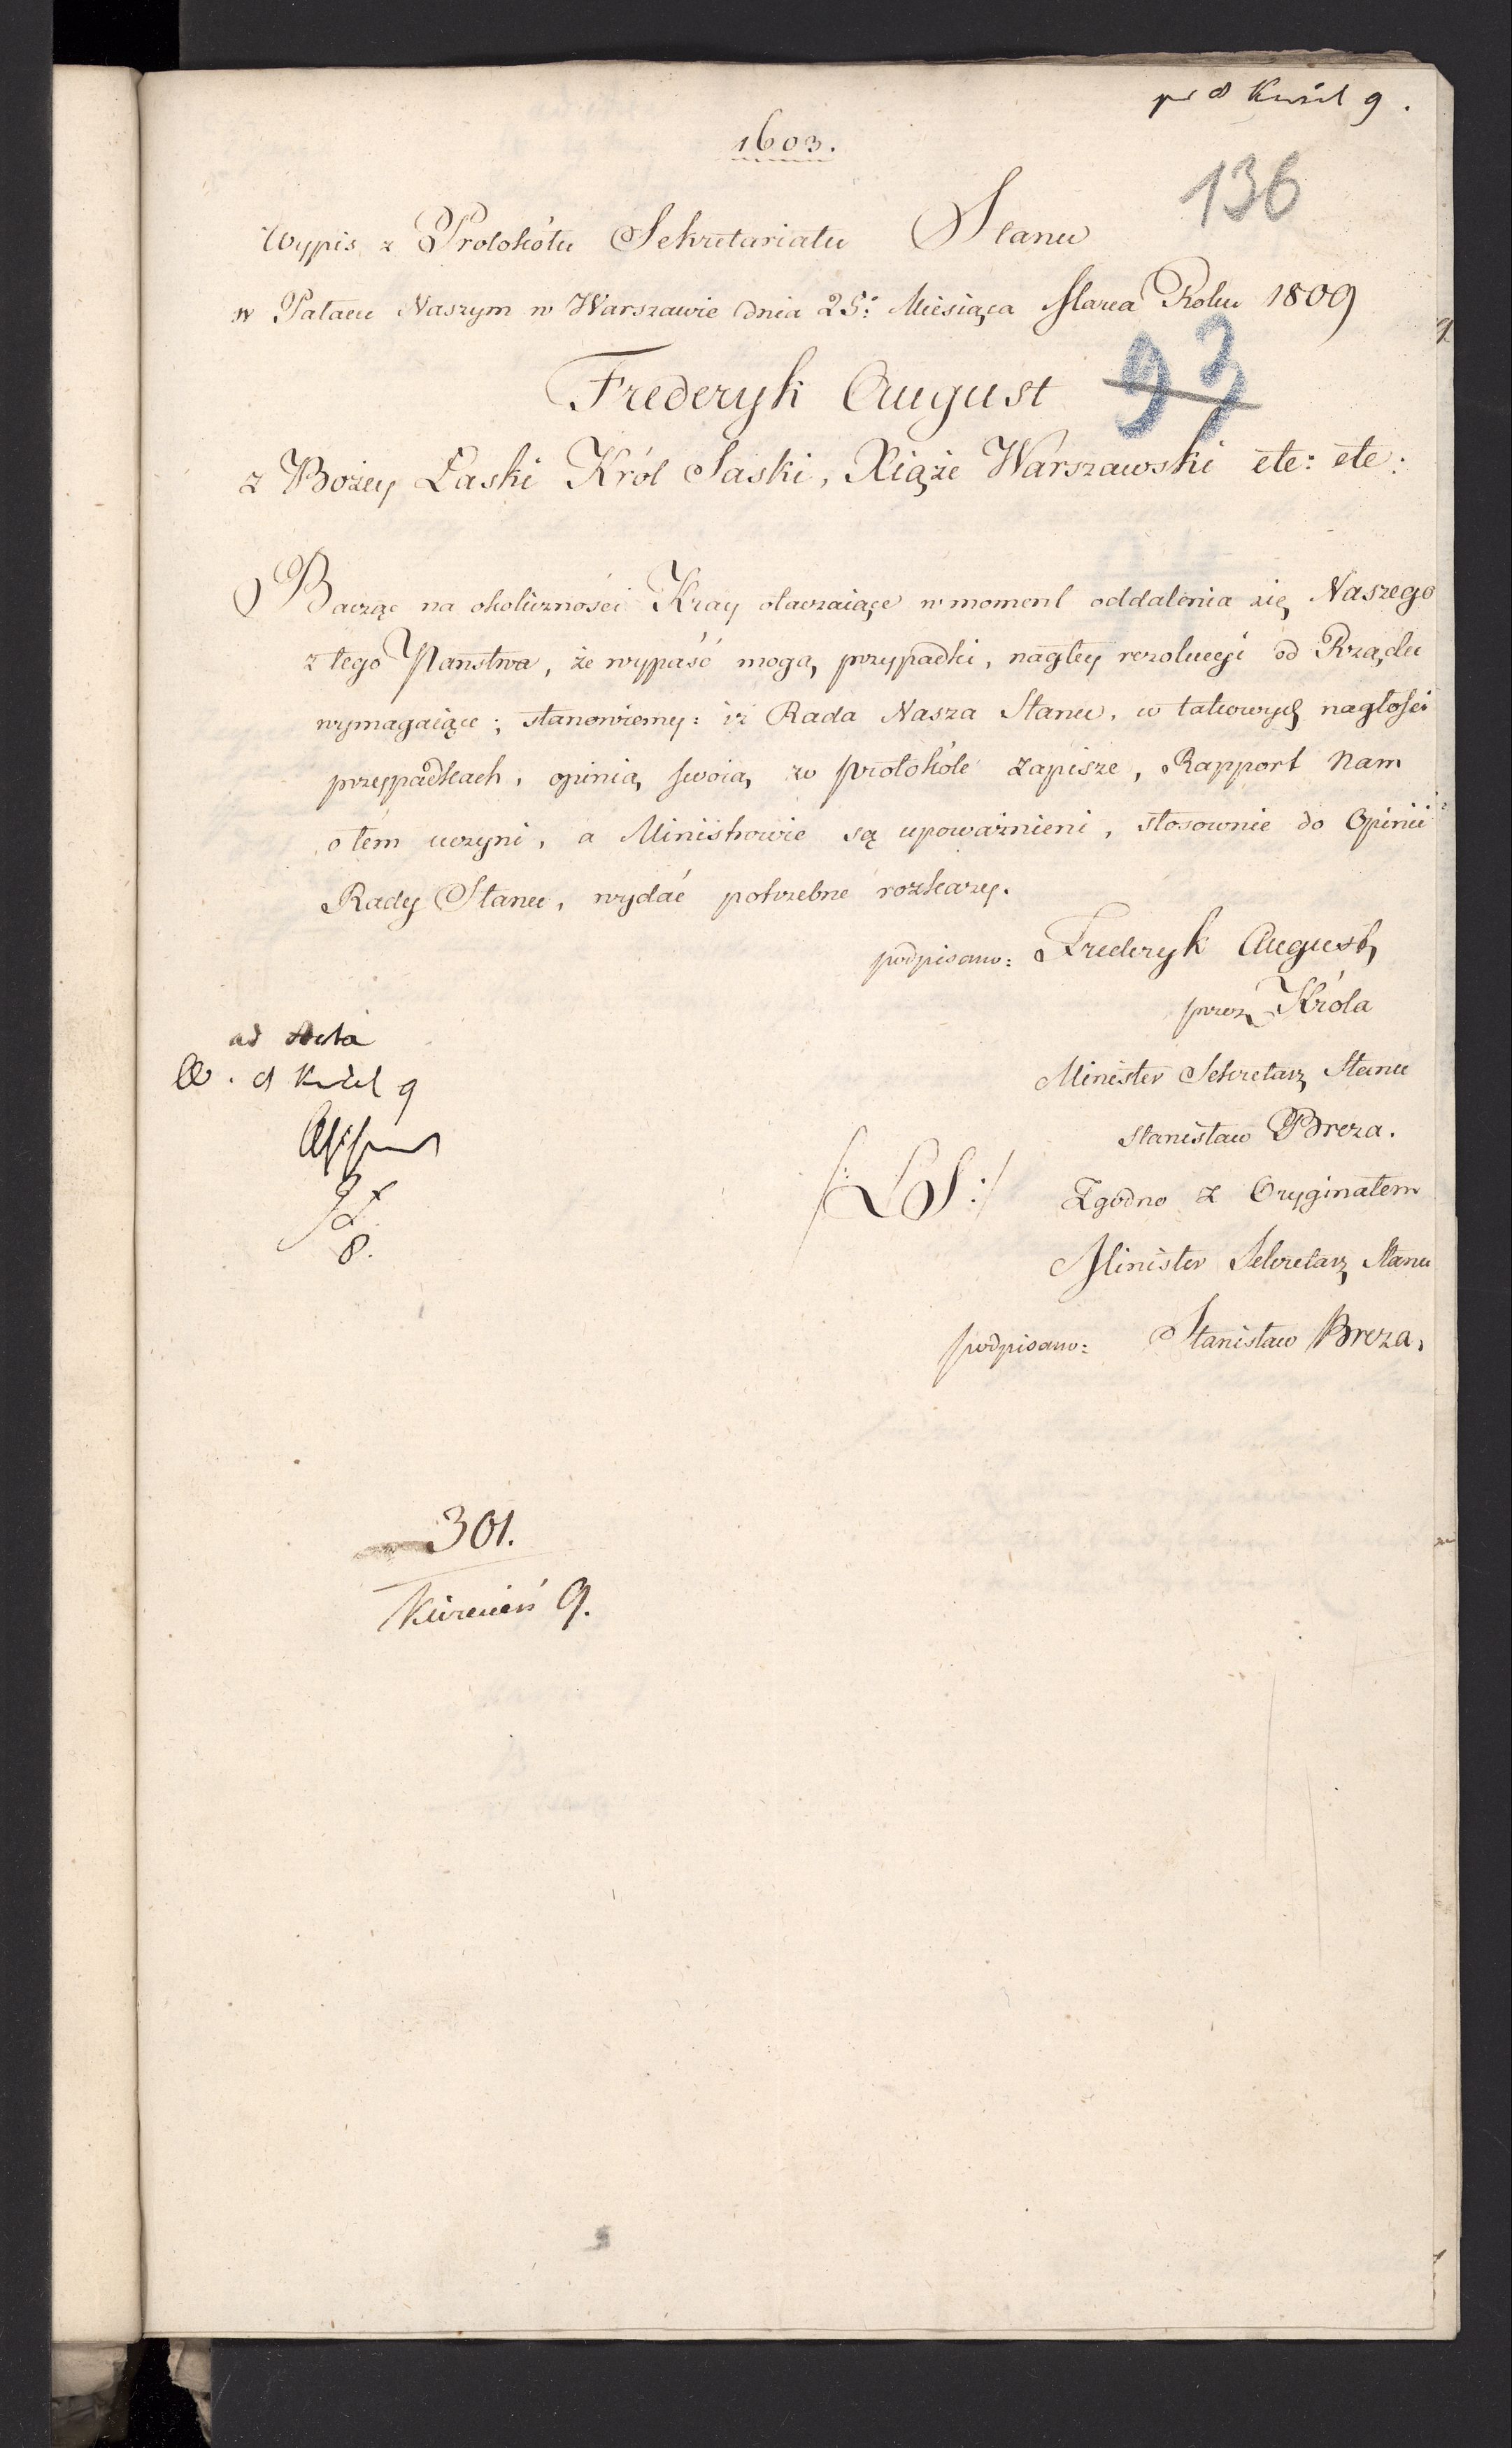 1603.
136
Wypis z Protokółu Sekretariatu Stanu
w Pałacu Naszym w Warszawie dnia 25: Miesiąca Marca Roku 1809
Frederyk August
93
z Bożey Łaski Król Saski, Xiąże Warszawski etc: etc:
Bacząc na okoliczności Kray otaczaiące w moment oddalenia się Naszego
z tego Państwa, że wypaść mogą przypadki, nagłey rezolucyi od Rządu
wymagaiące; stanowiemy: iż Rada Nasza Stanu, w takowych nagłości
przypadkach, opinią swoią w protokóle zapisze, Rapport Nam
o tém uczyni, a Ministrowie są upoważnieni, stosownie do Opinii
Rady Stanu, wydać potrzebne rozkazy.
podpisano: Frederyk August,
przez Króla
Minister Sekretarz Stanu
Stanisław Breza.
/:LS:/
Zgodno z Oryginałem
Minister Sekretarz Stanu
podpisano: Stanisław Breza.
ad Acta
301.
Kwiecień 9.